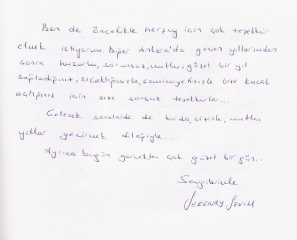 Ben de öncelikle herşey için çok teşekkür
etmek istiyorum. Diğer Ankara'da geçen yıllarımdan
sonra huzurlu, sorunsuz, mutlu, güzel bir yıl
sağladığınız, sıcaklığınızla, samimiyetinizle bize kucak
açtığınız için size sonsuz teşekkürler...
Gelecek senelerde de burda, sizinle, mutlu
yıllar geçirmek dileğiyle...
Ayrıca bugün gerçekten çok güzel bir gün...
Sevgilerimle